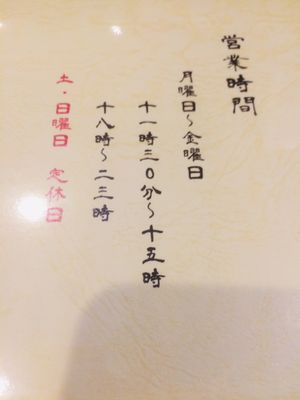 営業時間
月曜日〜金曜日
十一時三〇分〜十五時
十八時〜二三時
土・日曜日 定休日